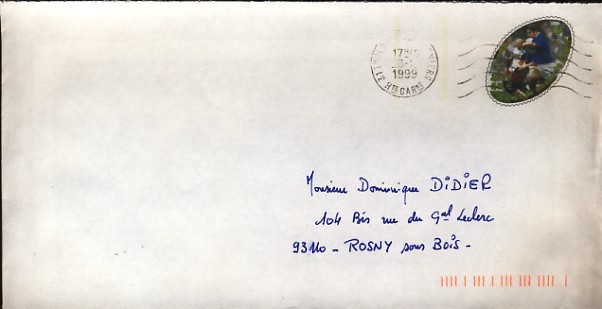 17H
1999
31 Hte GARNE
Monsieur Dominique DIDIER
104 Bis rue du Gal Leclerc
93110 - ROSNY sous BOIS -